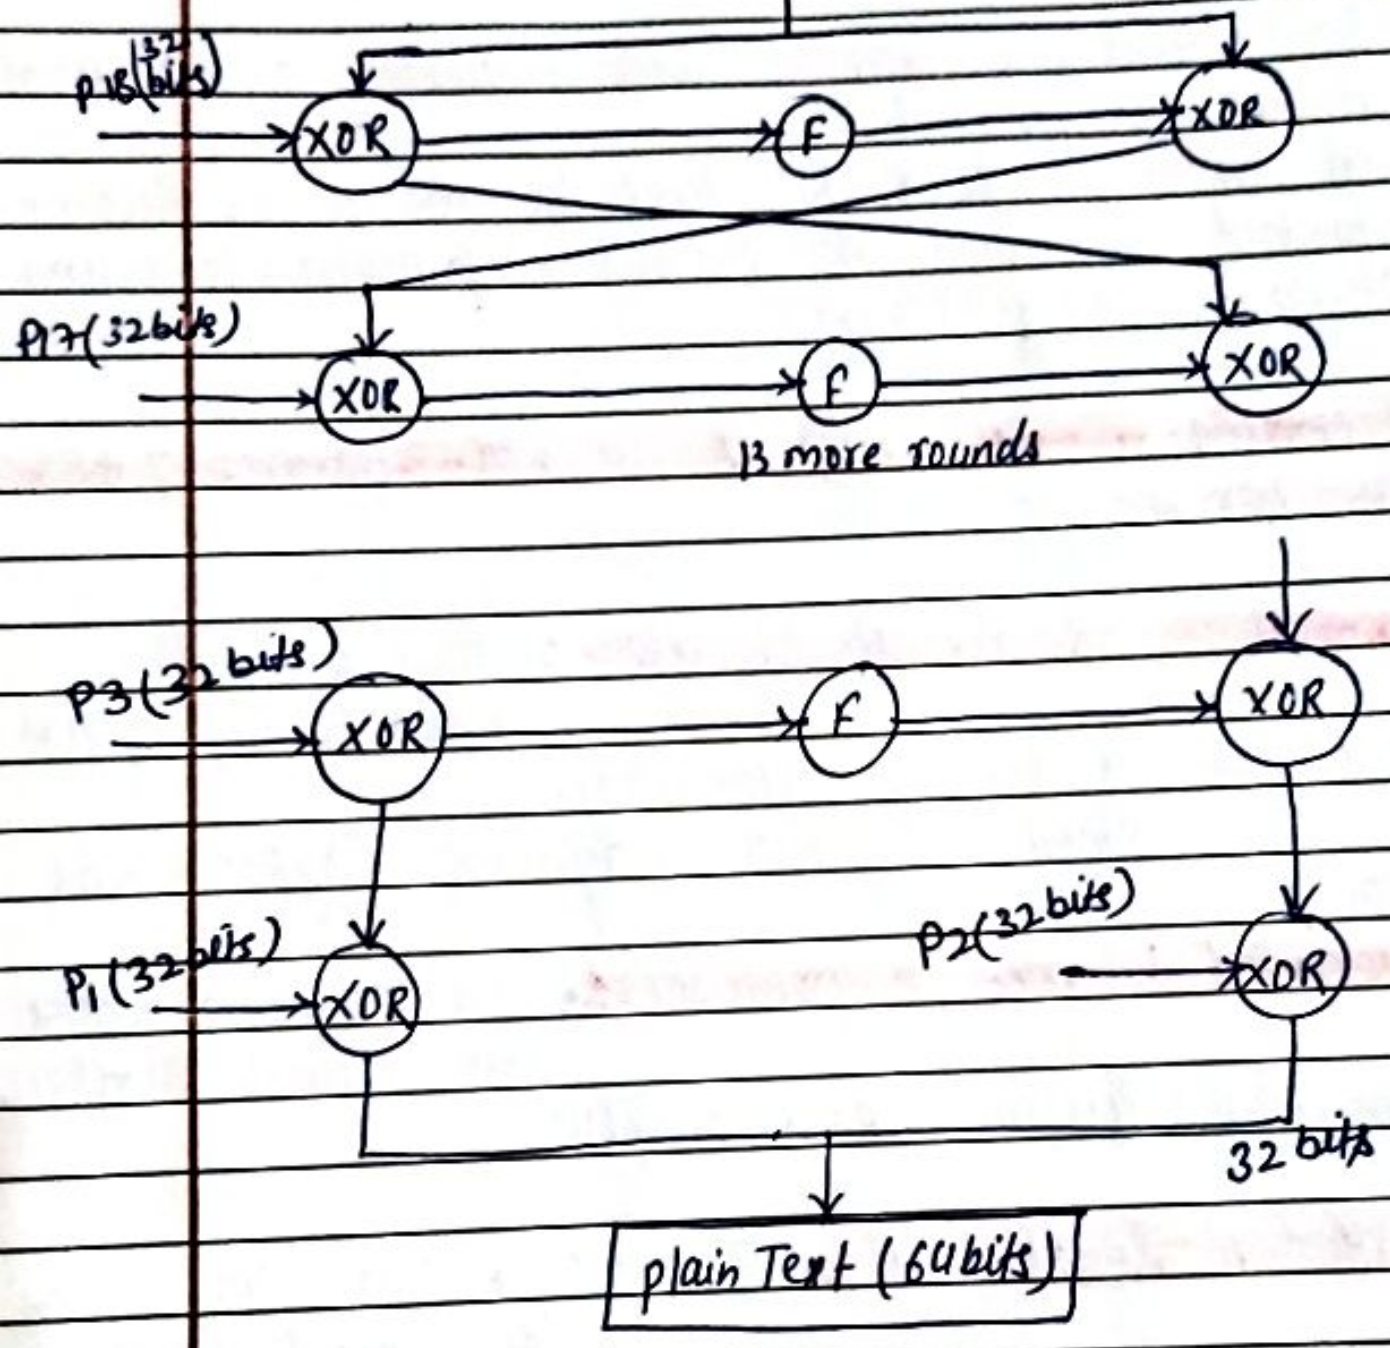 P18(32 bits)
XOR F XOR
P17(32bits)
XOR F XOR
13 more rounds
P3(32 bits)
XOR F XOR
P1(32bits) P2(32bits)
XOR XOR
32 bits
plain Text (64bits)